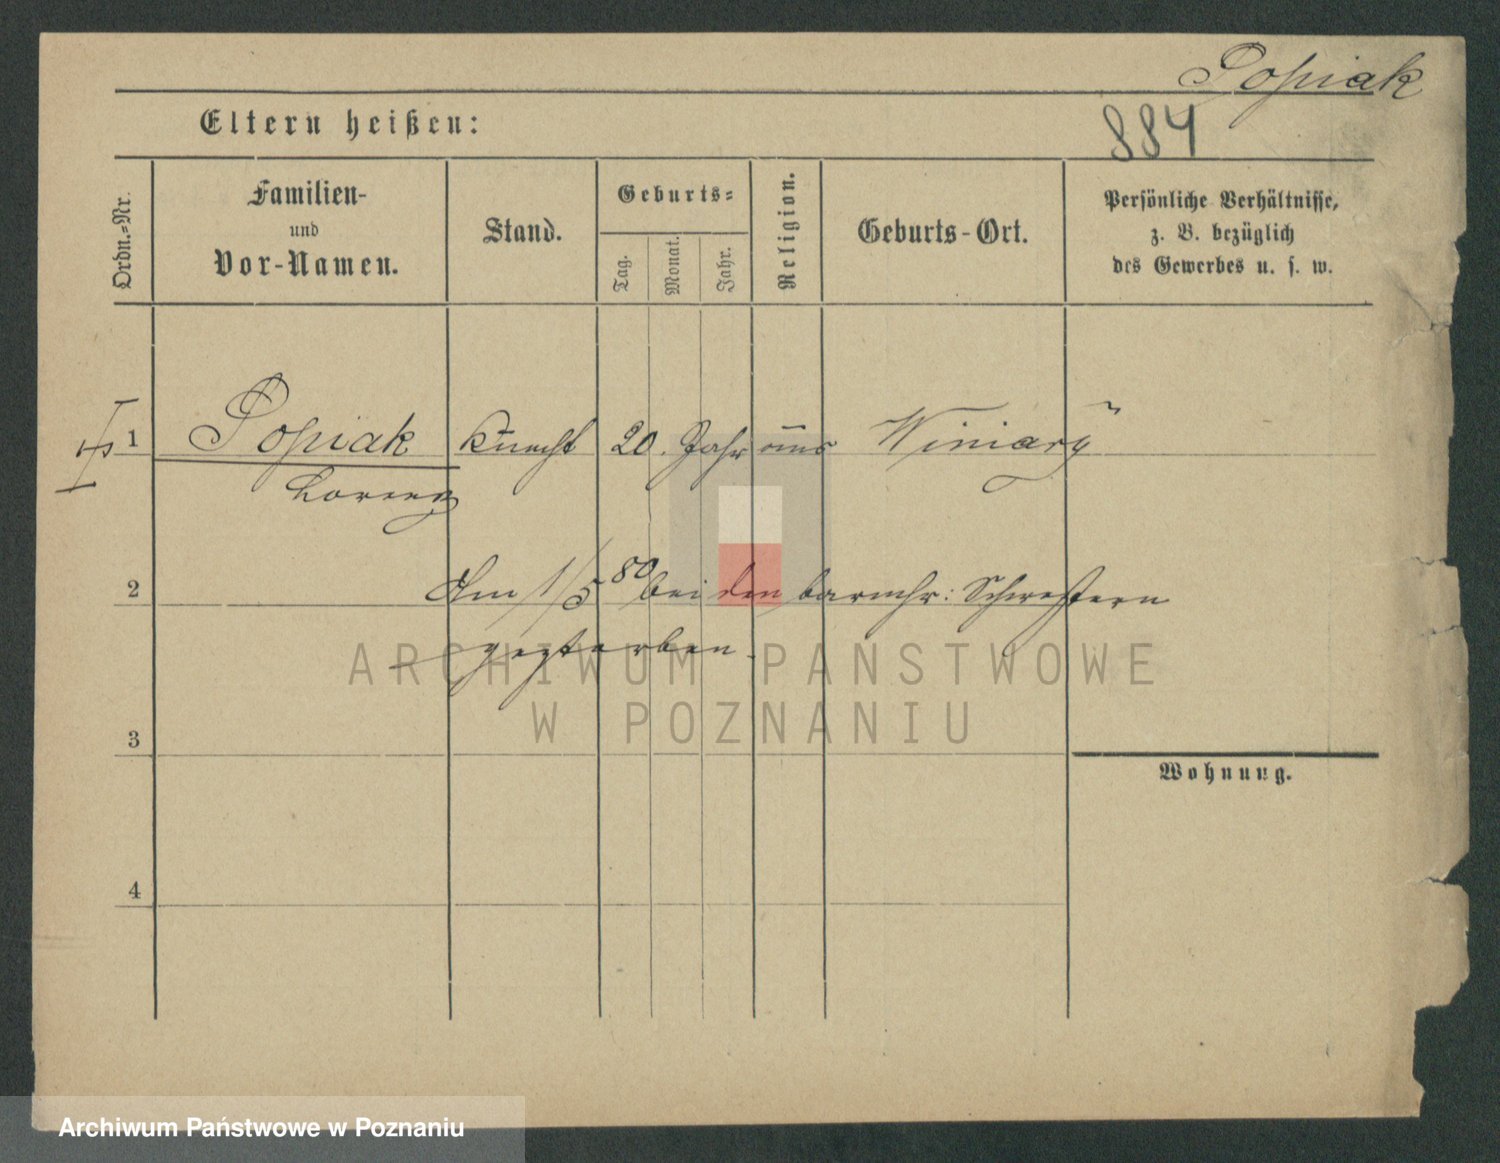 Popiak
Eltern heißen:
884
Ordn.-Nr.
Familien-
und
Vor-Namen.
Stand.
Geburts-
Tag.
Monat.
Jahr.
Religion.
Geburts-Ort.
Persönliche Verhältnisse,
z. B. bezüglich
des Gewerbes u. s. w.
1 Popiak Knecht 20. Jahr aus Winiary
Lorenz
2 Am 1/5 80 bei den barmhr: Schwestern
gestorben.
ARCHIWUM PAŃSTWOWE
W POZNANIU
3
Wohnung.
4
Archiwum Państwowe w Poznaniu